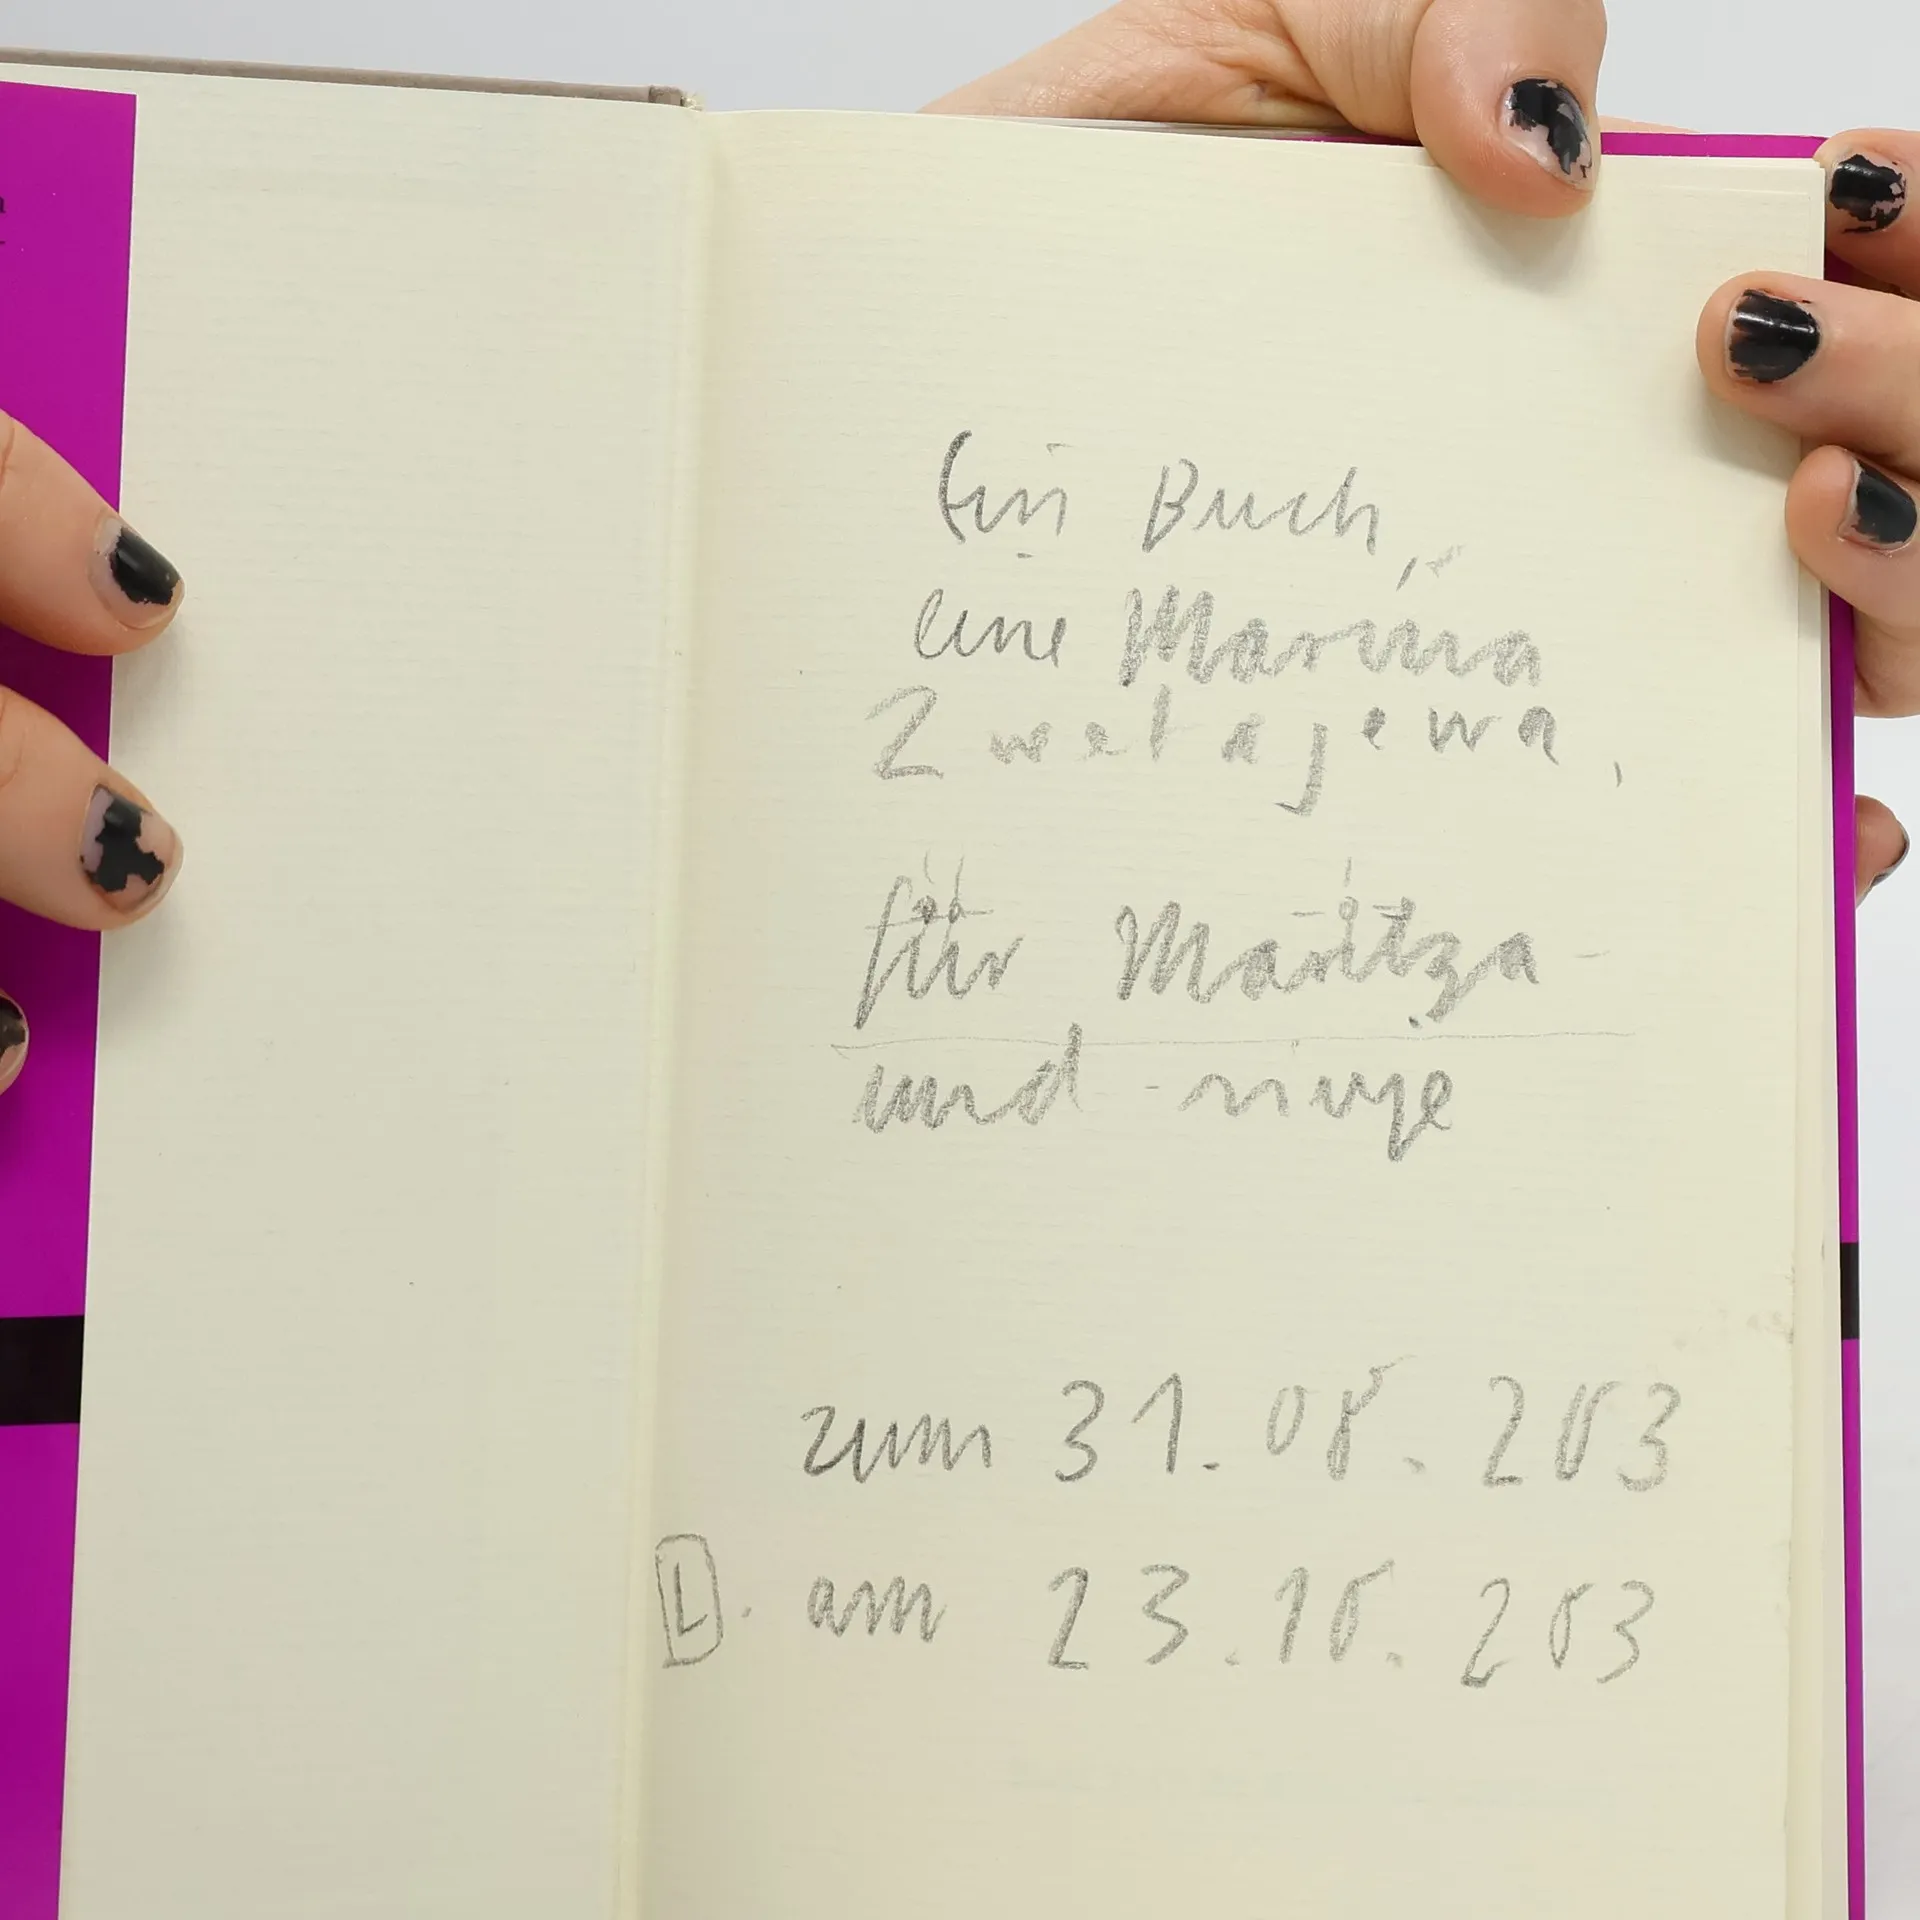 Ein Buch,
eine Marina
Zwetajewa,
für Maritza
und
zum 31.08.203
L. am 23.10.203